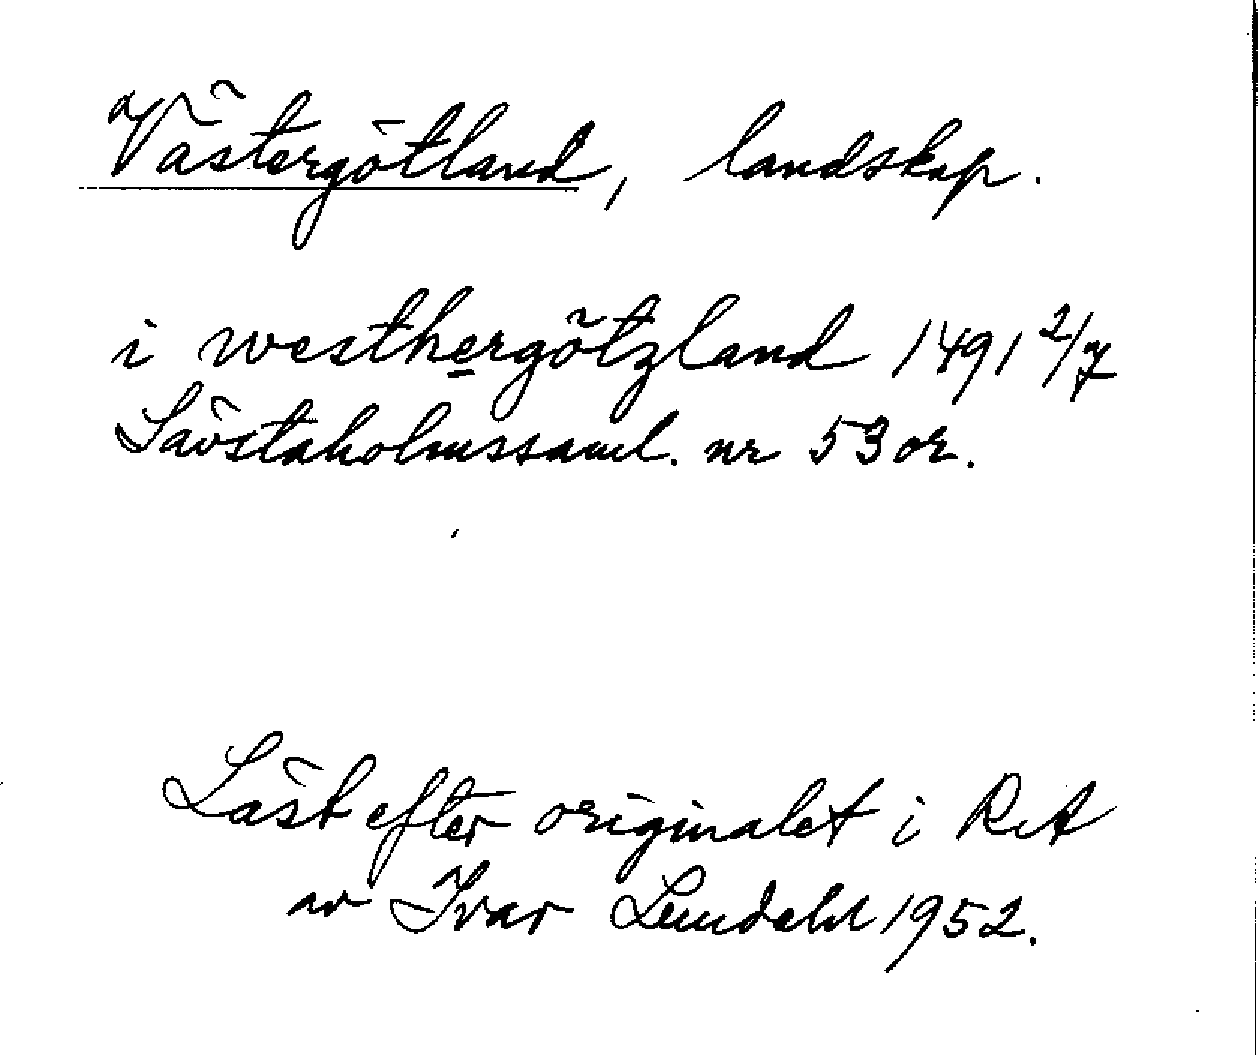 Västergötland, landskap.
i westhergötzland 1491 2/7
Sävstaholmssaml. nr 53 or.
Läst efter originalet i RA
av Ivar Lundahl 1952.